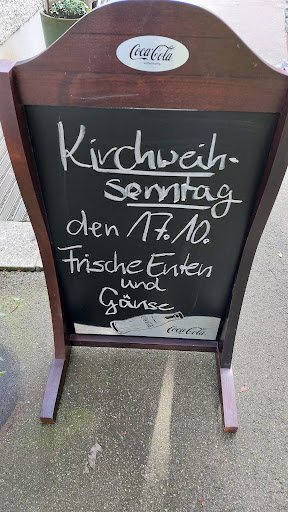 Coca-Cola
Kirchweih-
sonntag
den 17.10.
Frische Enten
und
Gänse
Coca-Cola